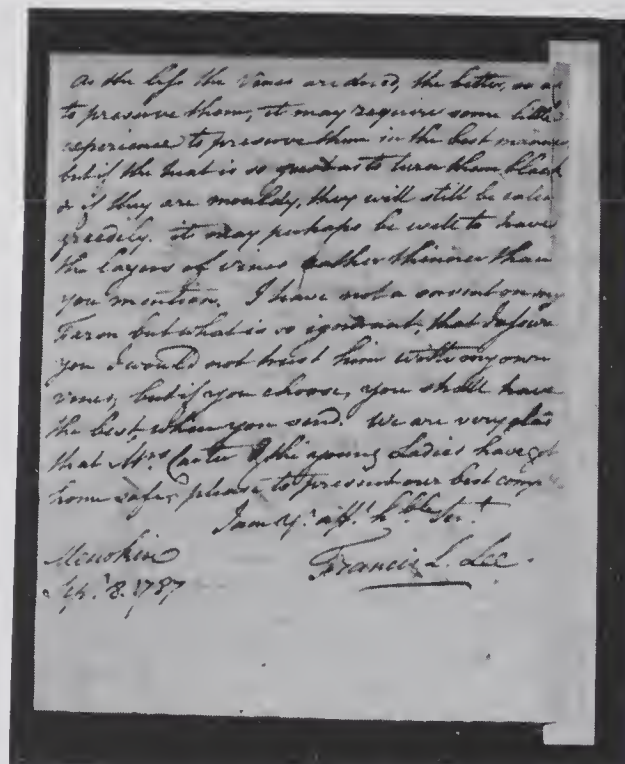 as the less the Vines are dried, the better, so as
to preserve them, it may require some little
experience to preserve them in the best manner,
but if the heat is so great as to turn them black
or if they are mouldy, they will still be eaten
greedily. it may perhaps be well to have
the layers of vines rather thinner than
you mention. I have not a servant on my
Farm but what is so ignorant, that I assure
you I would not trust him with my own
vines, but if you choose, you shall have
the best, when you send. We are very glad
that Mrs Carter & the young Ladies have got
home safe, please to present our best
I am yr. afft. hble Sert.
Menokin
Francis L. Lee.
Sepr. 8. 1787